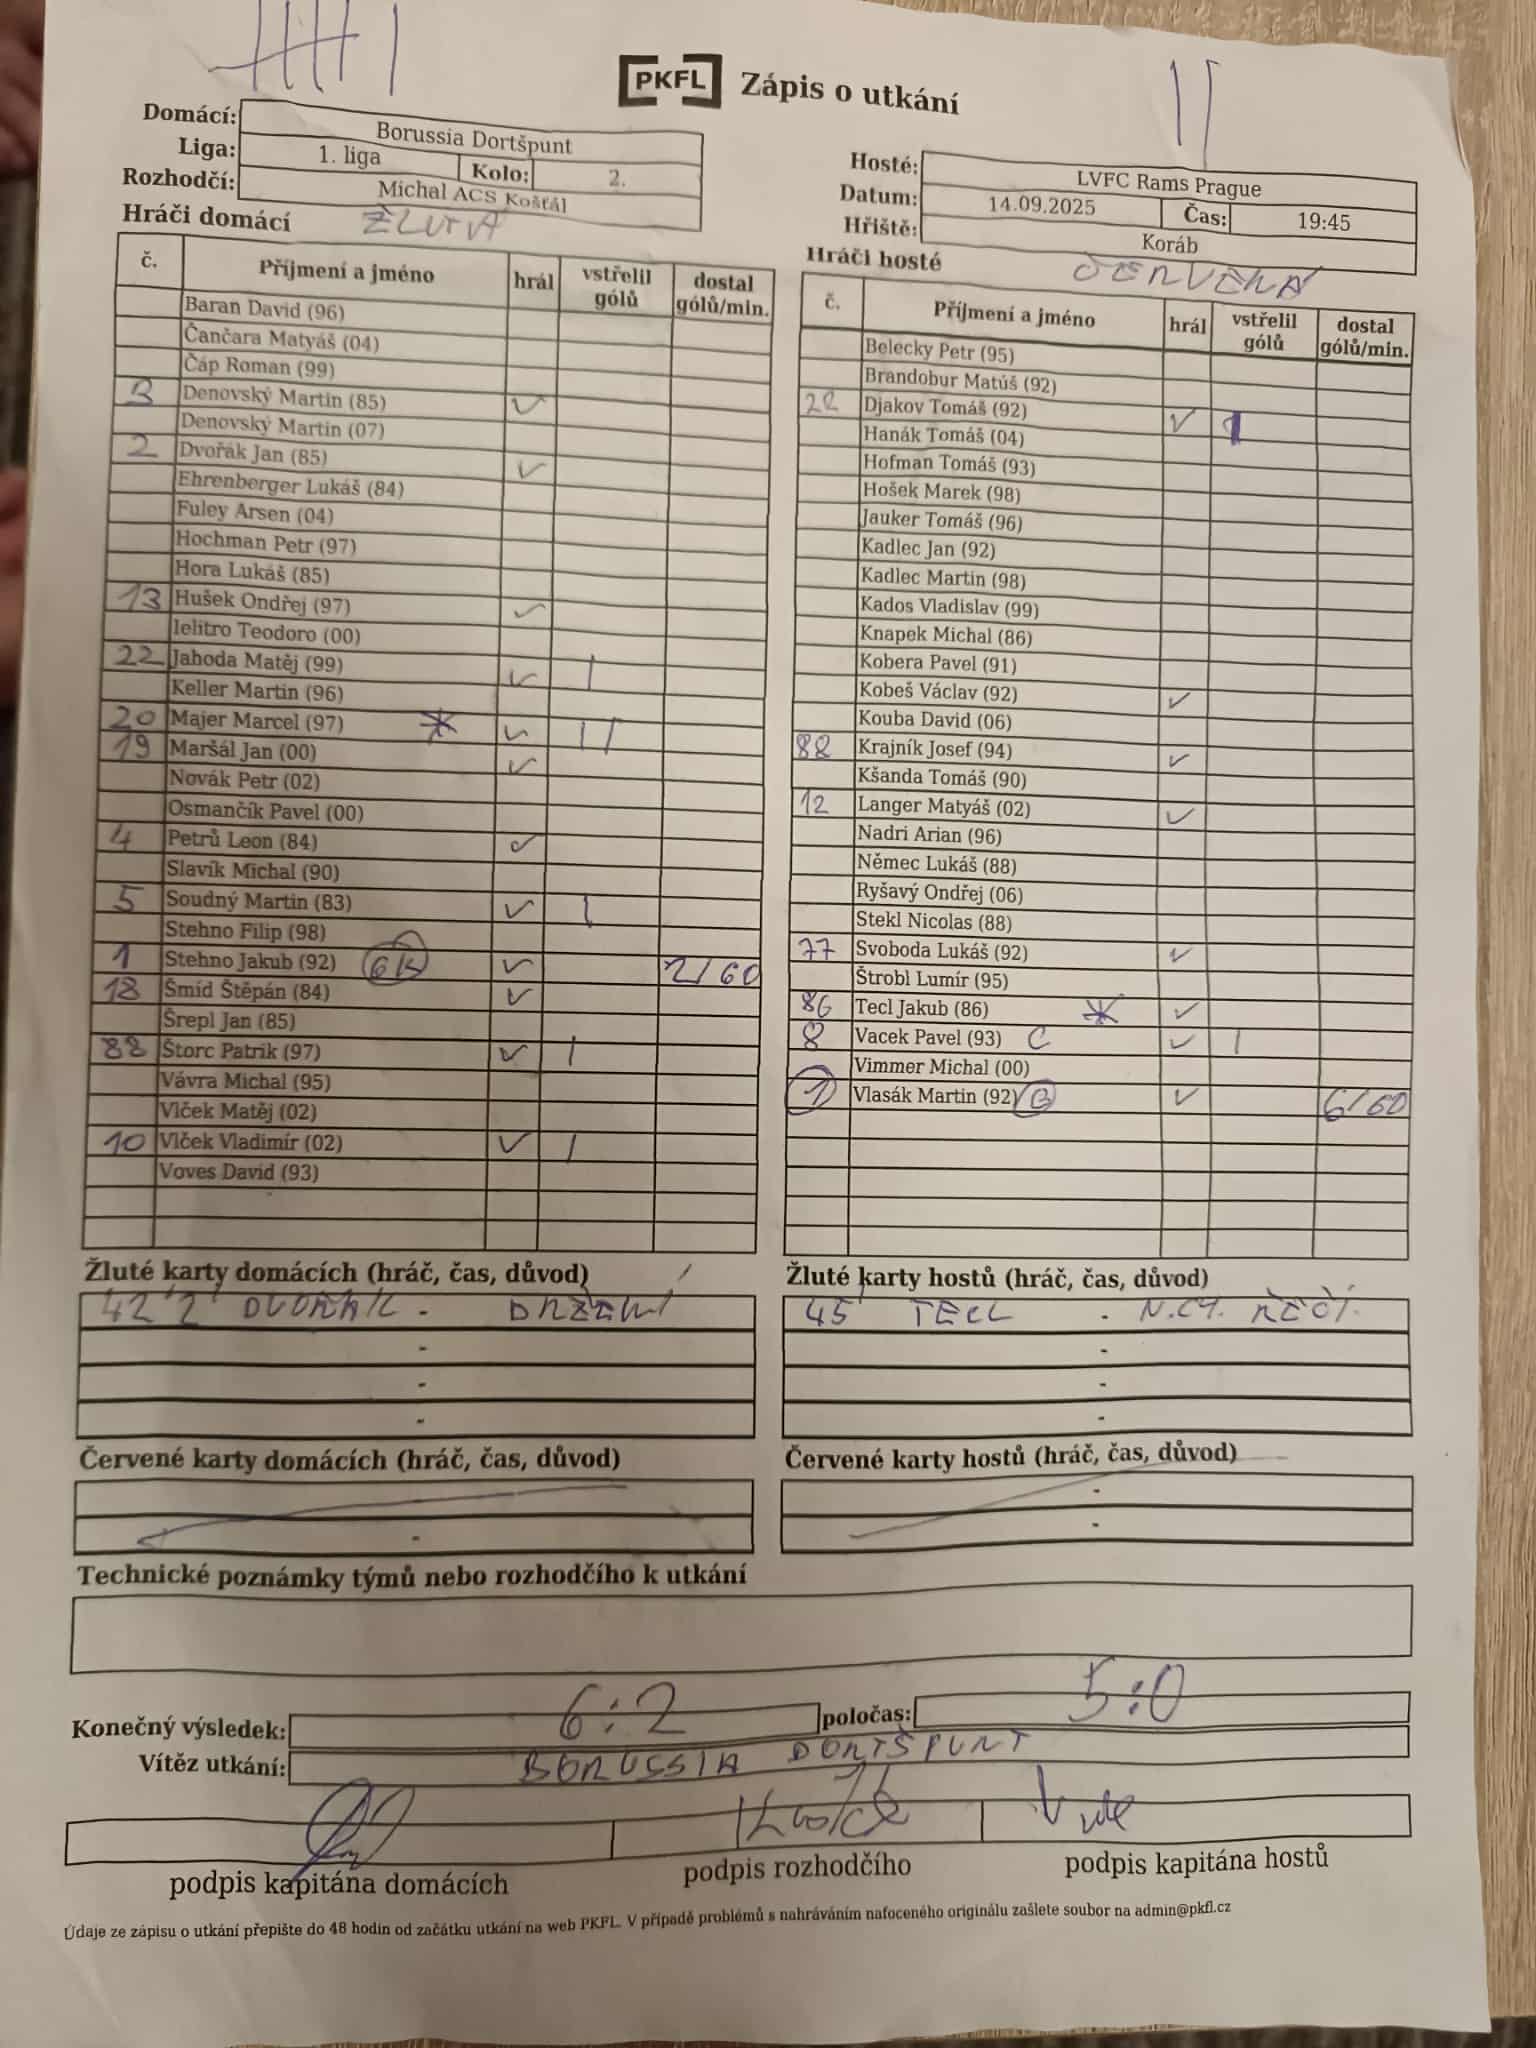 PKFL Zápis o utkání
Domácí: Borussia Dortšpunt
Liga: 1. liga Kolo: 2.
Rozhodčí: Michal ACS Košťál
Hosté: LVFC Rams Prague
Datum: 14.09.2025 Čas: 19:45
Hřiště: Koráb
Hráči domácí ŽLUTÁ
č. Příjmení a jméno hrál vstřelil gólů dostal gólů/min.
Baran David (96)
Čančara Matyáš (04)
Čáp Roman (99)
3 Denovský Martin (85) ✓
Denovský Martin (07)
2 Dvořák Jan (85) ✓
Ehrenberger Lukáš (84)
Fuley Arsen (04)
Hochman Petr (97)
Hora Lukáš (85)
13 Hušek Ondřej (97) ✓
Ielitro Teodoro (00)
22 Jahoda Matěj (99) ✓ |
Keller Martin (96)
20 Majer Marcel (97) * ✓ ||
19 Maršál Jan (00) ✓
Novák Petr (02)
Osmančík Pavel (00)
4 Petrů Leon (84) ✓
Slavík Michal (90)
5 Soudný Martin (83) ✓ |
Stehno Filip (98)
1 Stehno Jakub (92) GK ✓ 2/60
18 Šmíd Štěpán (84) ✓
Šrepl Jan (85)
88 Štorc Patrik (97) ✓ |
Vávra Michal (95)
Vlček Matěj (02)
10 Vlček Vladimír (02) ✓ |
Voves David (93)
Hráči hosté ČERVENÁ
č. Příjmení a jméno hrál vstřelil gólů dostal gólů/min.
Belecky Petr (95)
Brandobur Matúš (92)
22 Djakov Tomáš (92) ✓ 1
Hanák Tomáš (04)
Hofman Tomáš (93)
Hošek Marek (98)
Jauker Tomáš (96)
Kadlec Jan (92)
Kadlec Martin (98)
Kados Vladislav (99)
Knapek Michal (86)
Kobera Pavel (91)
Kobeš Václav (92) ✓
Kouba David (06)
88 Krajník Josef (94) ✓
Kšanda Tomáš (90)
12 Langer Matyáš (02) ✓
Nadri Arian (96)
Němec Lukáš (88)
Ryšavý Ondřej (06)
Stekl Nicolas (88)
77 Svoboda Lukáš (92) ✓
Štrobl Lumír (95)
86 Tecl Jakub (86) * ✓
8 Vacek Pavel (93) C ✓ |
Vimmer Michal (00)
1 Vlasák Martin (92) B ✓ 6/60
Žluté karty domácích (hráč, čas, důvod)
42' 2' DVOŘÁK - DRŽENÍ
-
-
-
Žluté karty hostů (hráč, čas, důvod)
45' TECL - N.CH. ŘEČÍ.
-
-
-
Červené karty domácích (hráč, čas, důvod)
-
-
Červené karty hostů (hráč, čas, důvod)
-
-
Technické poznámky týmů nebo rozhodčího k utkání
Konečný výsledek: 6:2 poločas: 5:0
Vítěz utkání: BORUSSIA DORTŠPUNT
podpis kapitána domácích podpis rozhodčího podpis kapitána hostů
Údaje ze zápisu o utkání přepište do 48 hodin od začátku utkání na web PKFL. V případě problémů s nahráváním nafoceného originálu zašlete soubor na admin@pkfl.cz